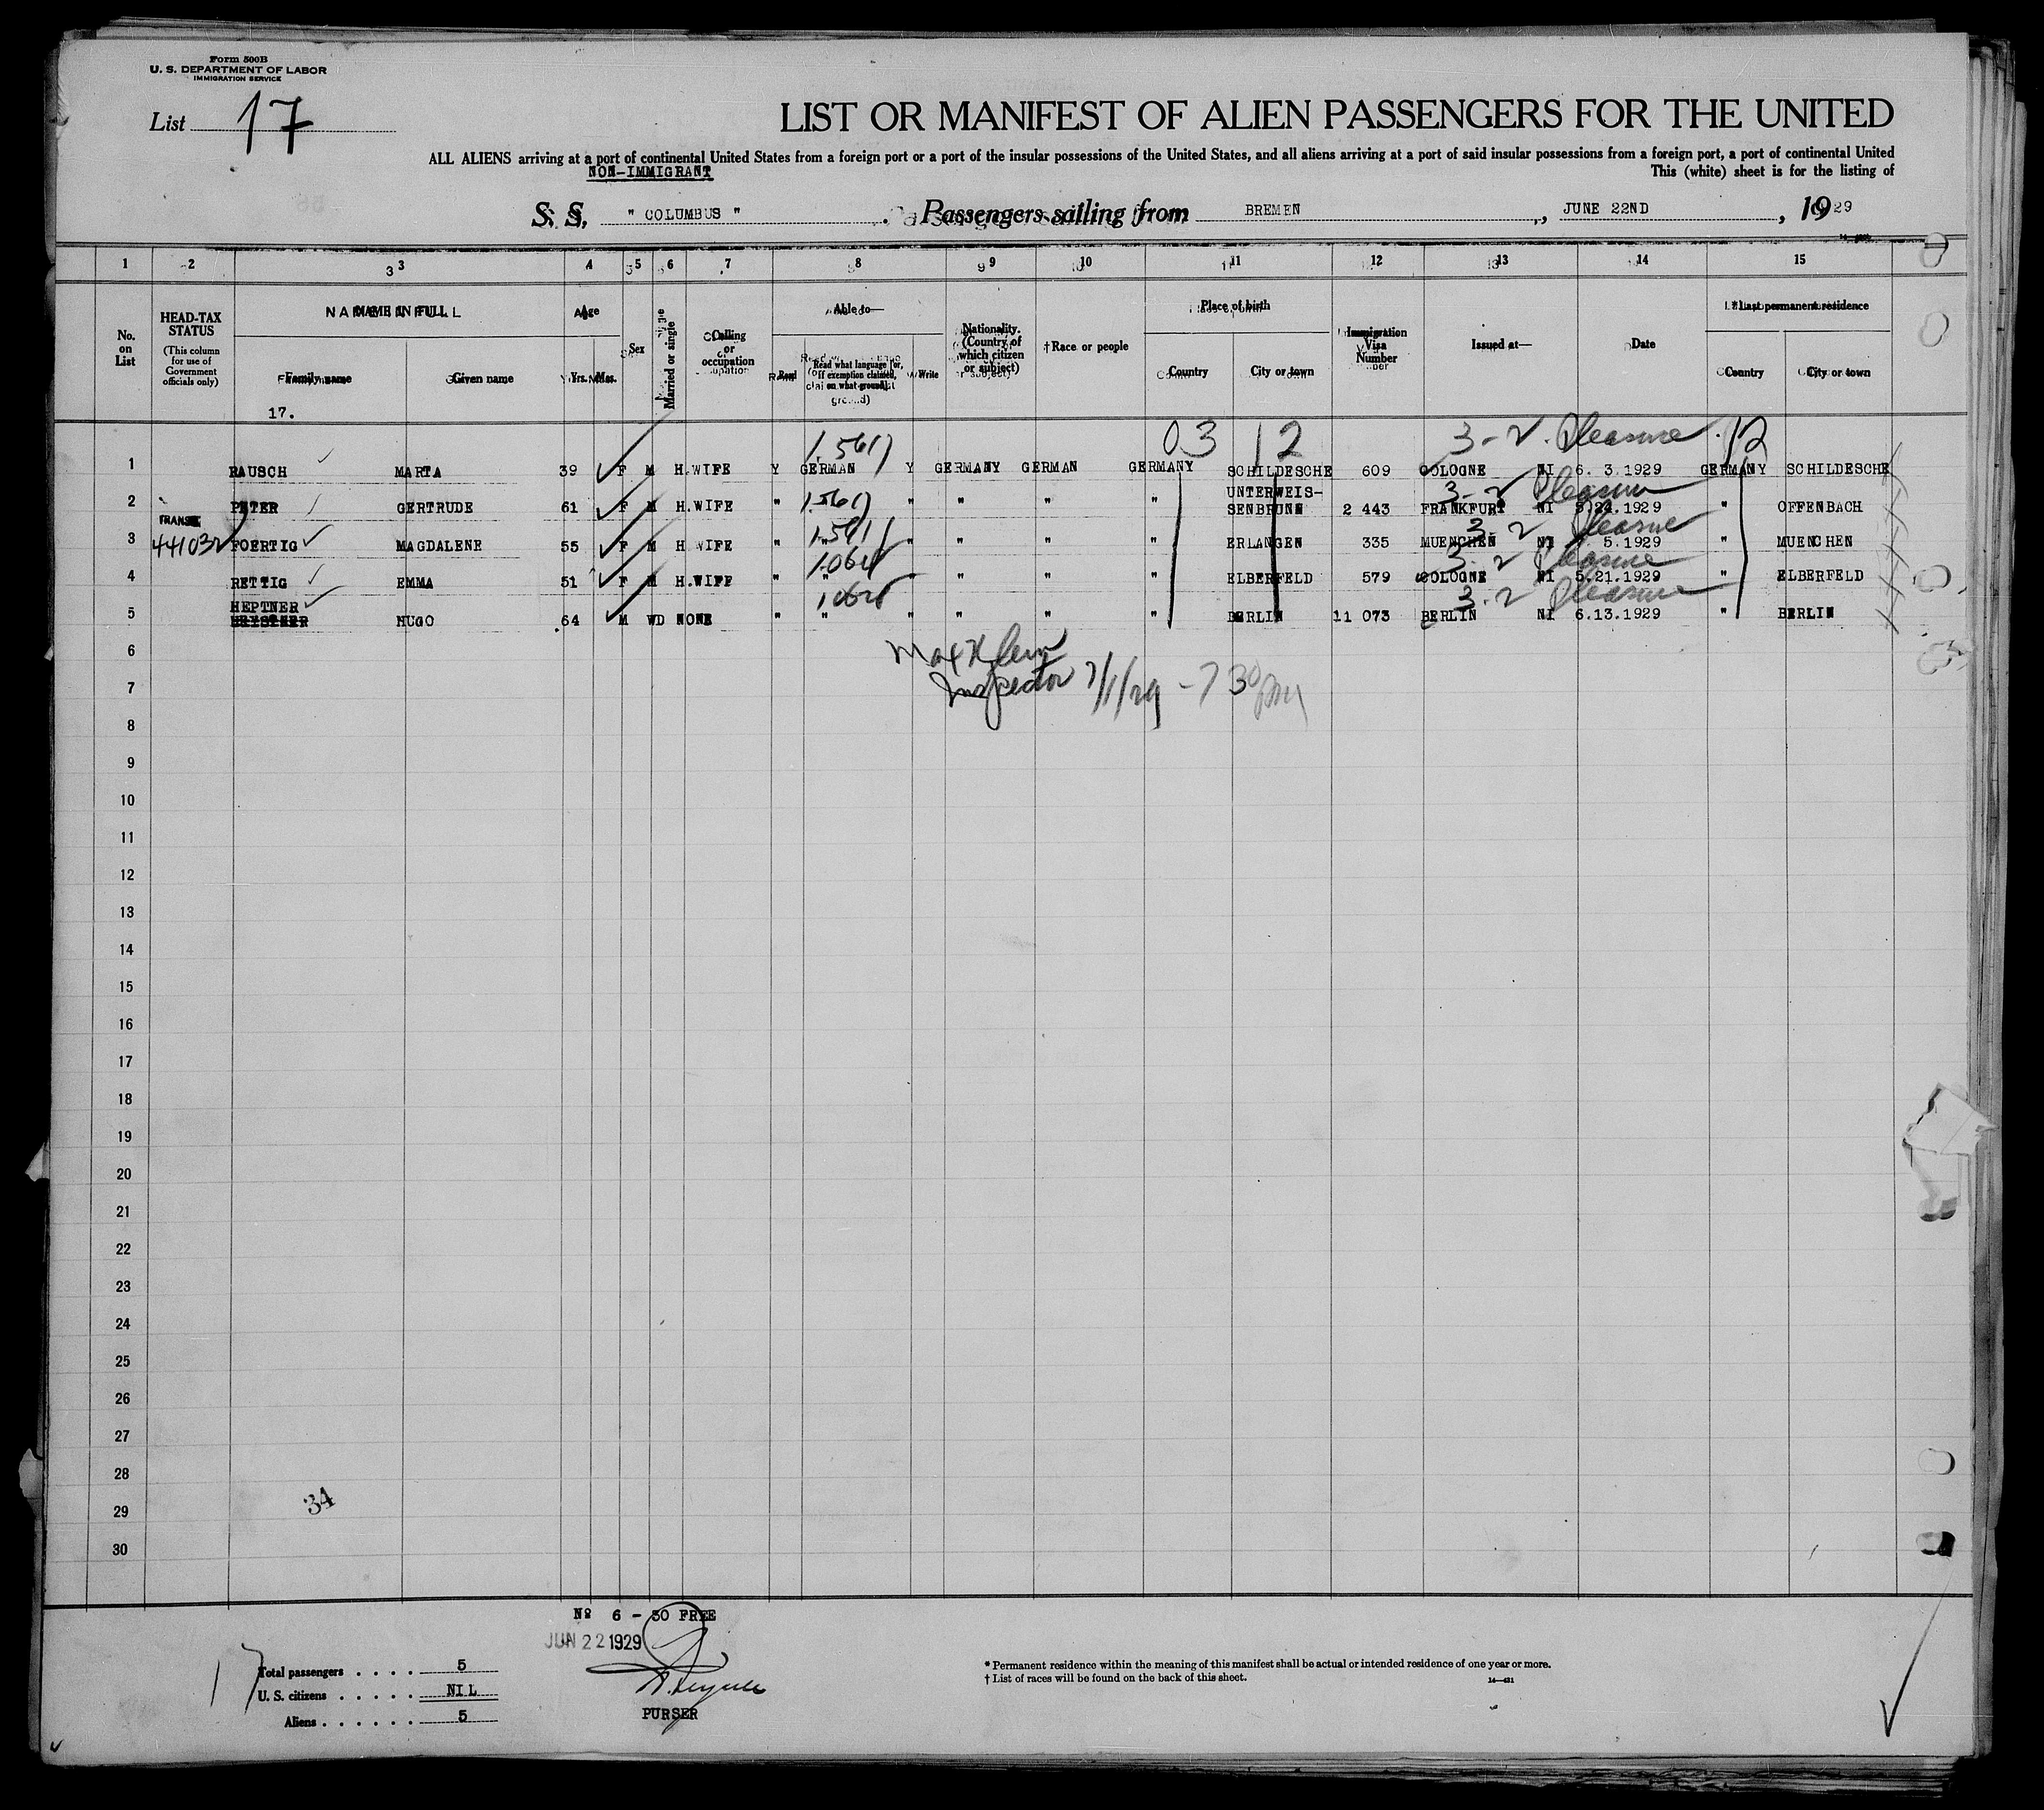 Form 500B
U. S. DEPARTMENT OF LABOR
IMMIGRATION SERVICE
List 17
LIST OR MANIFEST OF ALIEN PASSENGERS FOR THE UNITED
ALL ALIENS arriving at a port of continental United States from a foreign port or a port of the insular possessions of the United States, and all aliens arriving at a port of said insular possessions from a foreign port, a port of continental United
NON-IMMIGRANT This (white) sheet is for the listing of
S. S. " COLUMBUS " Passengers sailing from BREMEN, JUNE 22ND, 1929
1 2 3 4 5 6 7 8 9 10 11 12 13 14 15
No. on List
HEAD-TAX STATUS
(This column for use of Government officials only)
NAME IN FULL
Family name Given name
17.
Age
Yrs. Mos.
Sex
Married or single
Calling or occupation
Able to—
Read Read what language [or, if exemption claimed, on what ground] Write
Nationality. (Country of which citizen or subject)
†Race or people
Place of birth
Country City or town
Immigration Visa Number
Issued at—
Date
*Last permanent residence
Country City or town
03 12 3-2 Pleasure 12
1 RAUSCH MARTA 39 F M H.WIFE Y GERMAN Y GERMANY GERMAN GERMANY SCHILDESCHE 609 COLOGNE NI 6. 3.1929 GERMANY SCHILDESCHE
3-2 Pleasure
2 PETER GERTRUDE 61 F M H.WIFE " " " " " UNTERWEIS-
SENBRUNN 2 443 FRANKFURT NI 5.24.1929 " OFFENBACH
TRANSIT
441032
3-2 Pleasure
3 FOERTIG MAGDALENE 55 F M H WIFE " " " " " " ERLANGEN 335 MUENCHEN NI 5.1929 " MUENCHEN
3-2 Pleasure
4 RETTIG EMMA 51 F M H.WIFE " " " " " " ELBERFELD 579 COLOGNE NI 5.21.1929 " ELBERFELD
HEPTNER 3-2 Pleasure
5 HUGO 64 M WD NONE " " " " " " BERLIN 11 073 BERLIN NI 6.13.1929 " BERLIN
6
Inspector 7/1/29 - 7 30 PM
7
8
9
10
11
12
13
14
15
16
17
18
19
20
21
22
23
24
25
26
27
28
34
29
30
Nº 6 - 30 FREE
JUN 22 1929
17
Total passengers . . . . 5
U. S. citizens . . . . . NIL
Aliens . . . . . . 5
PURSER
* Permanent residence within the meaning of this manifest shall be actual or intended residence of one year or more.
† List of races will be found on the back of this sheet.